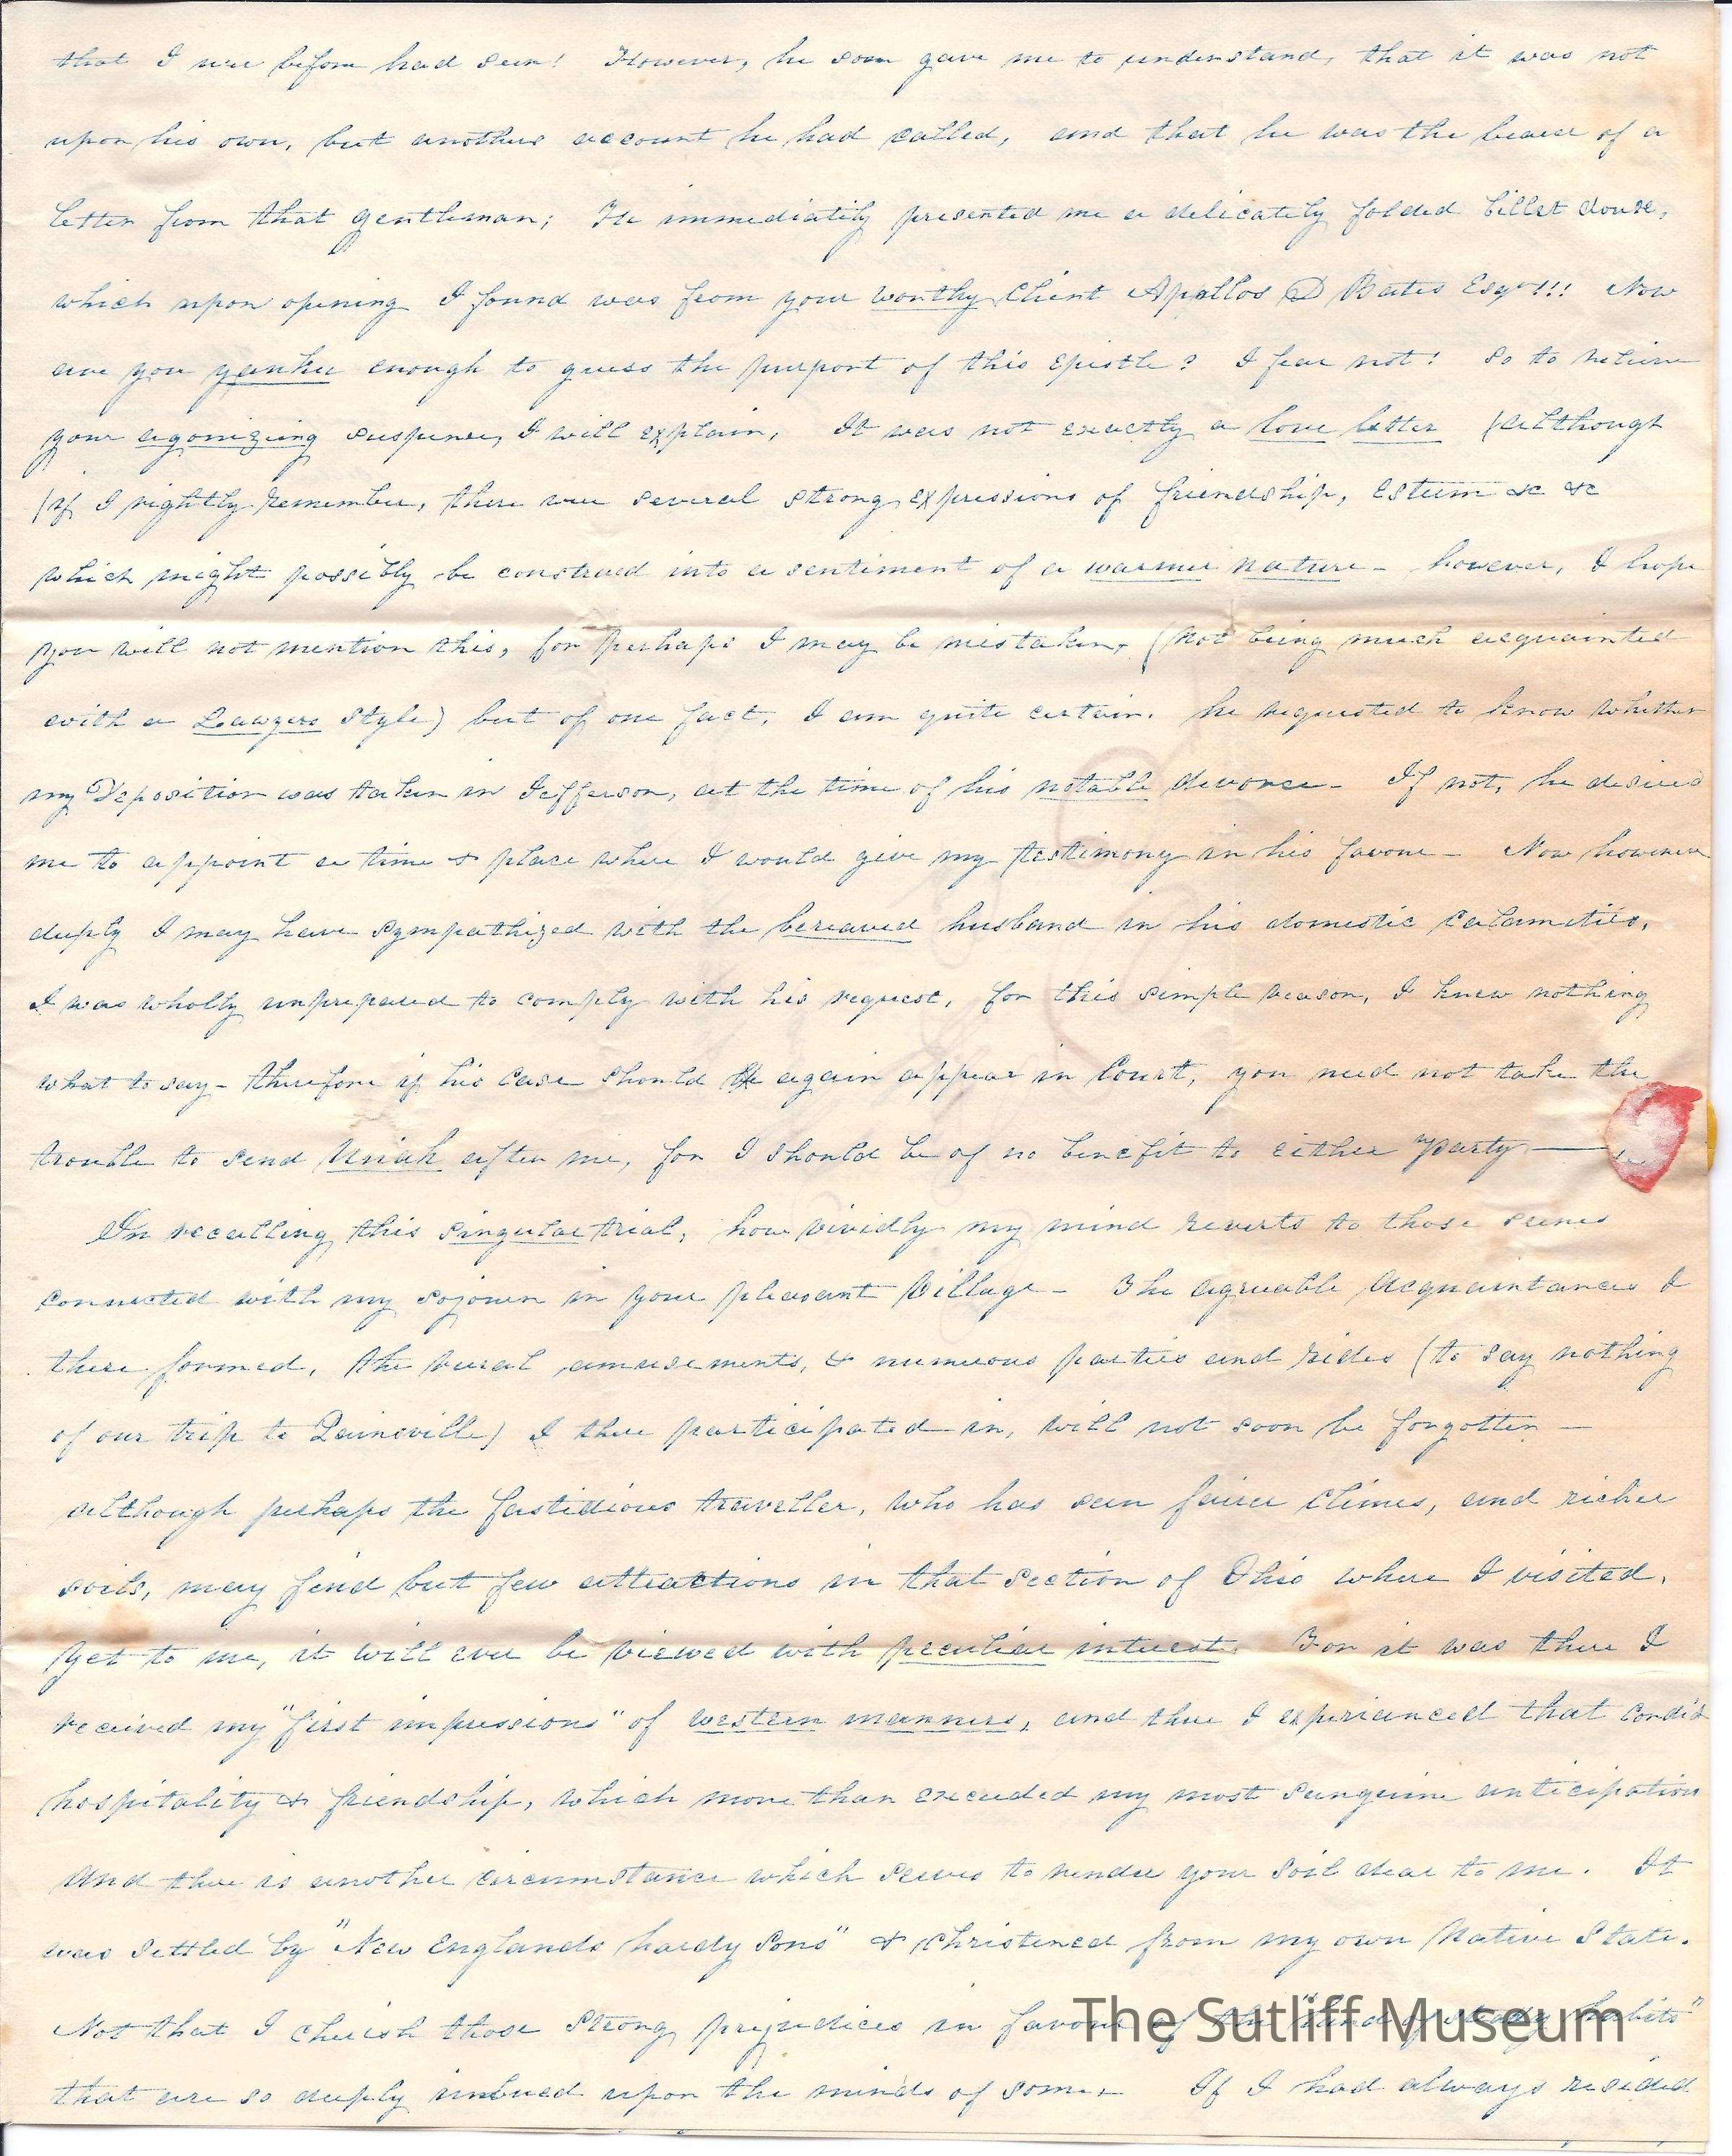 that I neer before had seen! However, he soon gave me to understand, that it was not
upon his own, but anothers account he had called, and that he was the bearer of a
letter from that gentleman; He immediately presented me a delicately folded billet doux,
which upon opening I found was from your worthy Client Apollos D Bates Esqr!!! Now
are you yankee enough to guess the purport of this Epistle? I fear not! So to relieve
your agonizing suspense, I will explain, It was not exactly a love letter (although
(if I rightly remember, there were several strong expressions of friendship, Esteem &c &c
which might possibly be construed into a sentiment of a warmer nature - however, I hope
you will not mention this, for perhaps I may be mistaken, (not being much acquainted
with a Lawyers Style) but of one fact, I am quite certain. he requested to know whether
my Deposition was taken in Jefferson, at the time of his notable divorce - If not, he desired
me to appoint a time & place where I would give my testimony in his favour - Now however
deeply I may have sympathized with the bereaved husband in his domestic calamities,
I was wholly unprepared to comply with his request, for this simple reason, I knew nothing
what to say - therefore if his case should again appear in Court, you need not take the
trouble to send Uriah after me, for I should be of no benefit to either party —
In recalling this singular trial, how vividly my mind reverts to those scenes
connected with my sojourn in your pleasant Village - The agreeable acquaintances I
there formed, the rural amusements, & numerous parties and rides (to say nothing
of our trip to Painsville) I there participated in, will not soon be forgotten —
although perhaps the fastidious traveller, who has seen fairer climes, and richer
soils, may find but few attractions in that section of Ohio where I visited,
yet to me, it will ever be viewed with peculiar interest. For it was there I
received my "first impressions" of western manners, and there I experienced that
hospitality & friendship, which more than exceeded my most sanguine anticipation
And there is another circumstance which serves to render your soil dear to me. It
was settled by "New Englands hardy Sons" & christened from my own Native State.
Not that I cherish those strong prejudices in favour of the "land of steady habits"
that are so deeply imbued upon the minds of some. If I had always resided
The Sutliff Museum